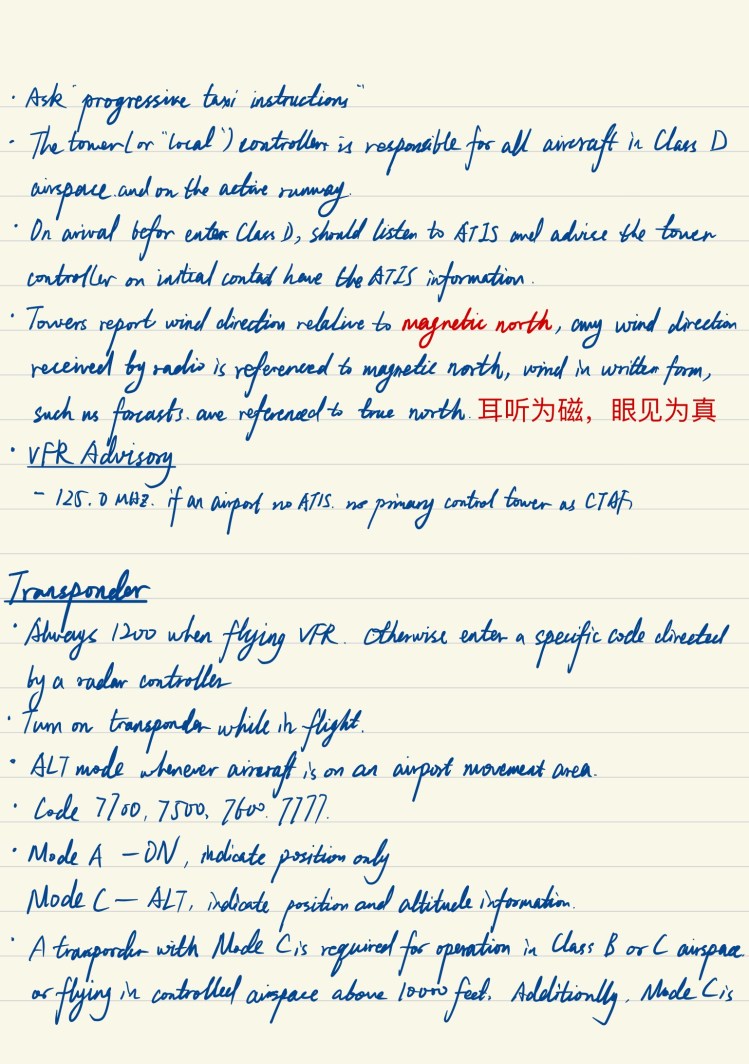 · Ask "progressive taxi instructions"
· The tower (or "local") controller is responsible for all aircraft in Class D
airspace and on the active runway.
· On arival befor enter Class D, should listen to ATIS and advise the tower
controller on initial contact have the ATIS information.
· Towers report wind direction relative to magnetic north, any wind direction
received by radio is referenced to magnetic north, wind in written form,
such as forcasts. are referenced to true north. 耳听为磁，眼见为真
· VFR Advisory
- 125.0 MHz. if an airport no ATIS. no primary control tower as CTAF,
Transponder
· Always 1200 when flying VFR. Otherwise enter a specific code directed
by a radar controller
· Turn on transponder while in flight.
· ALT mode whenever aircraft is on an airport movement area.
· Code 7700, 7500, 7600. 7777.
· Mode A — ON, indicate position only
Mode C — ALT, indicate position and altitude information.
· A transporder with Mode C is required for operation in Class B or C airspace
or flying in controlled airspace above 10000 feet. Additionally, Mode C is